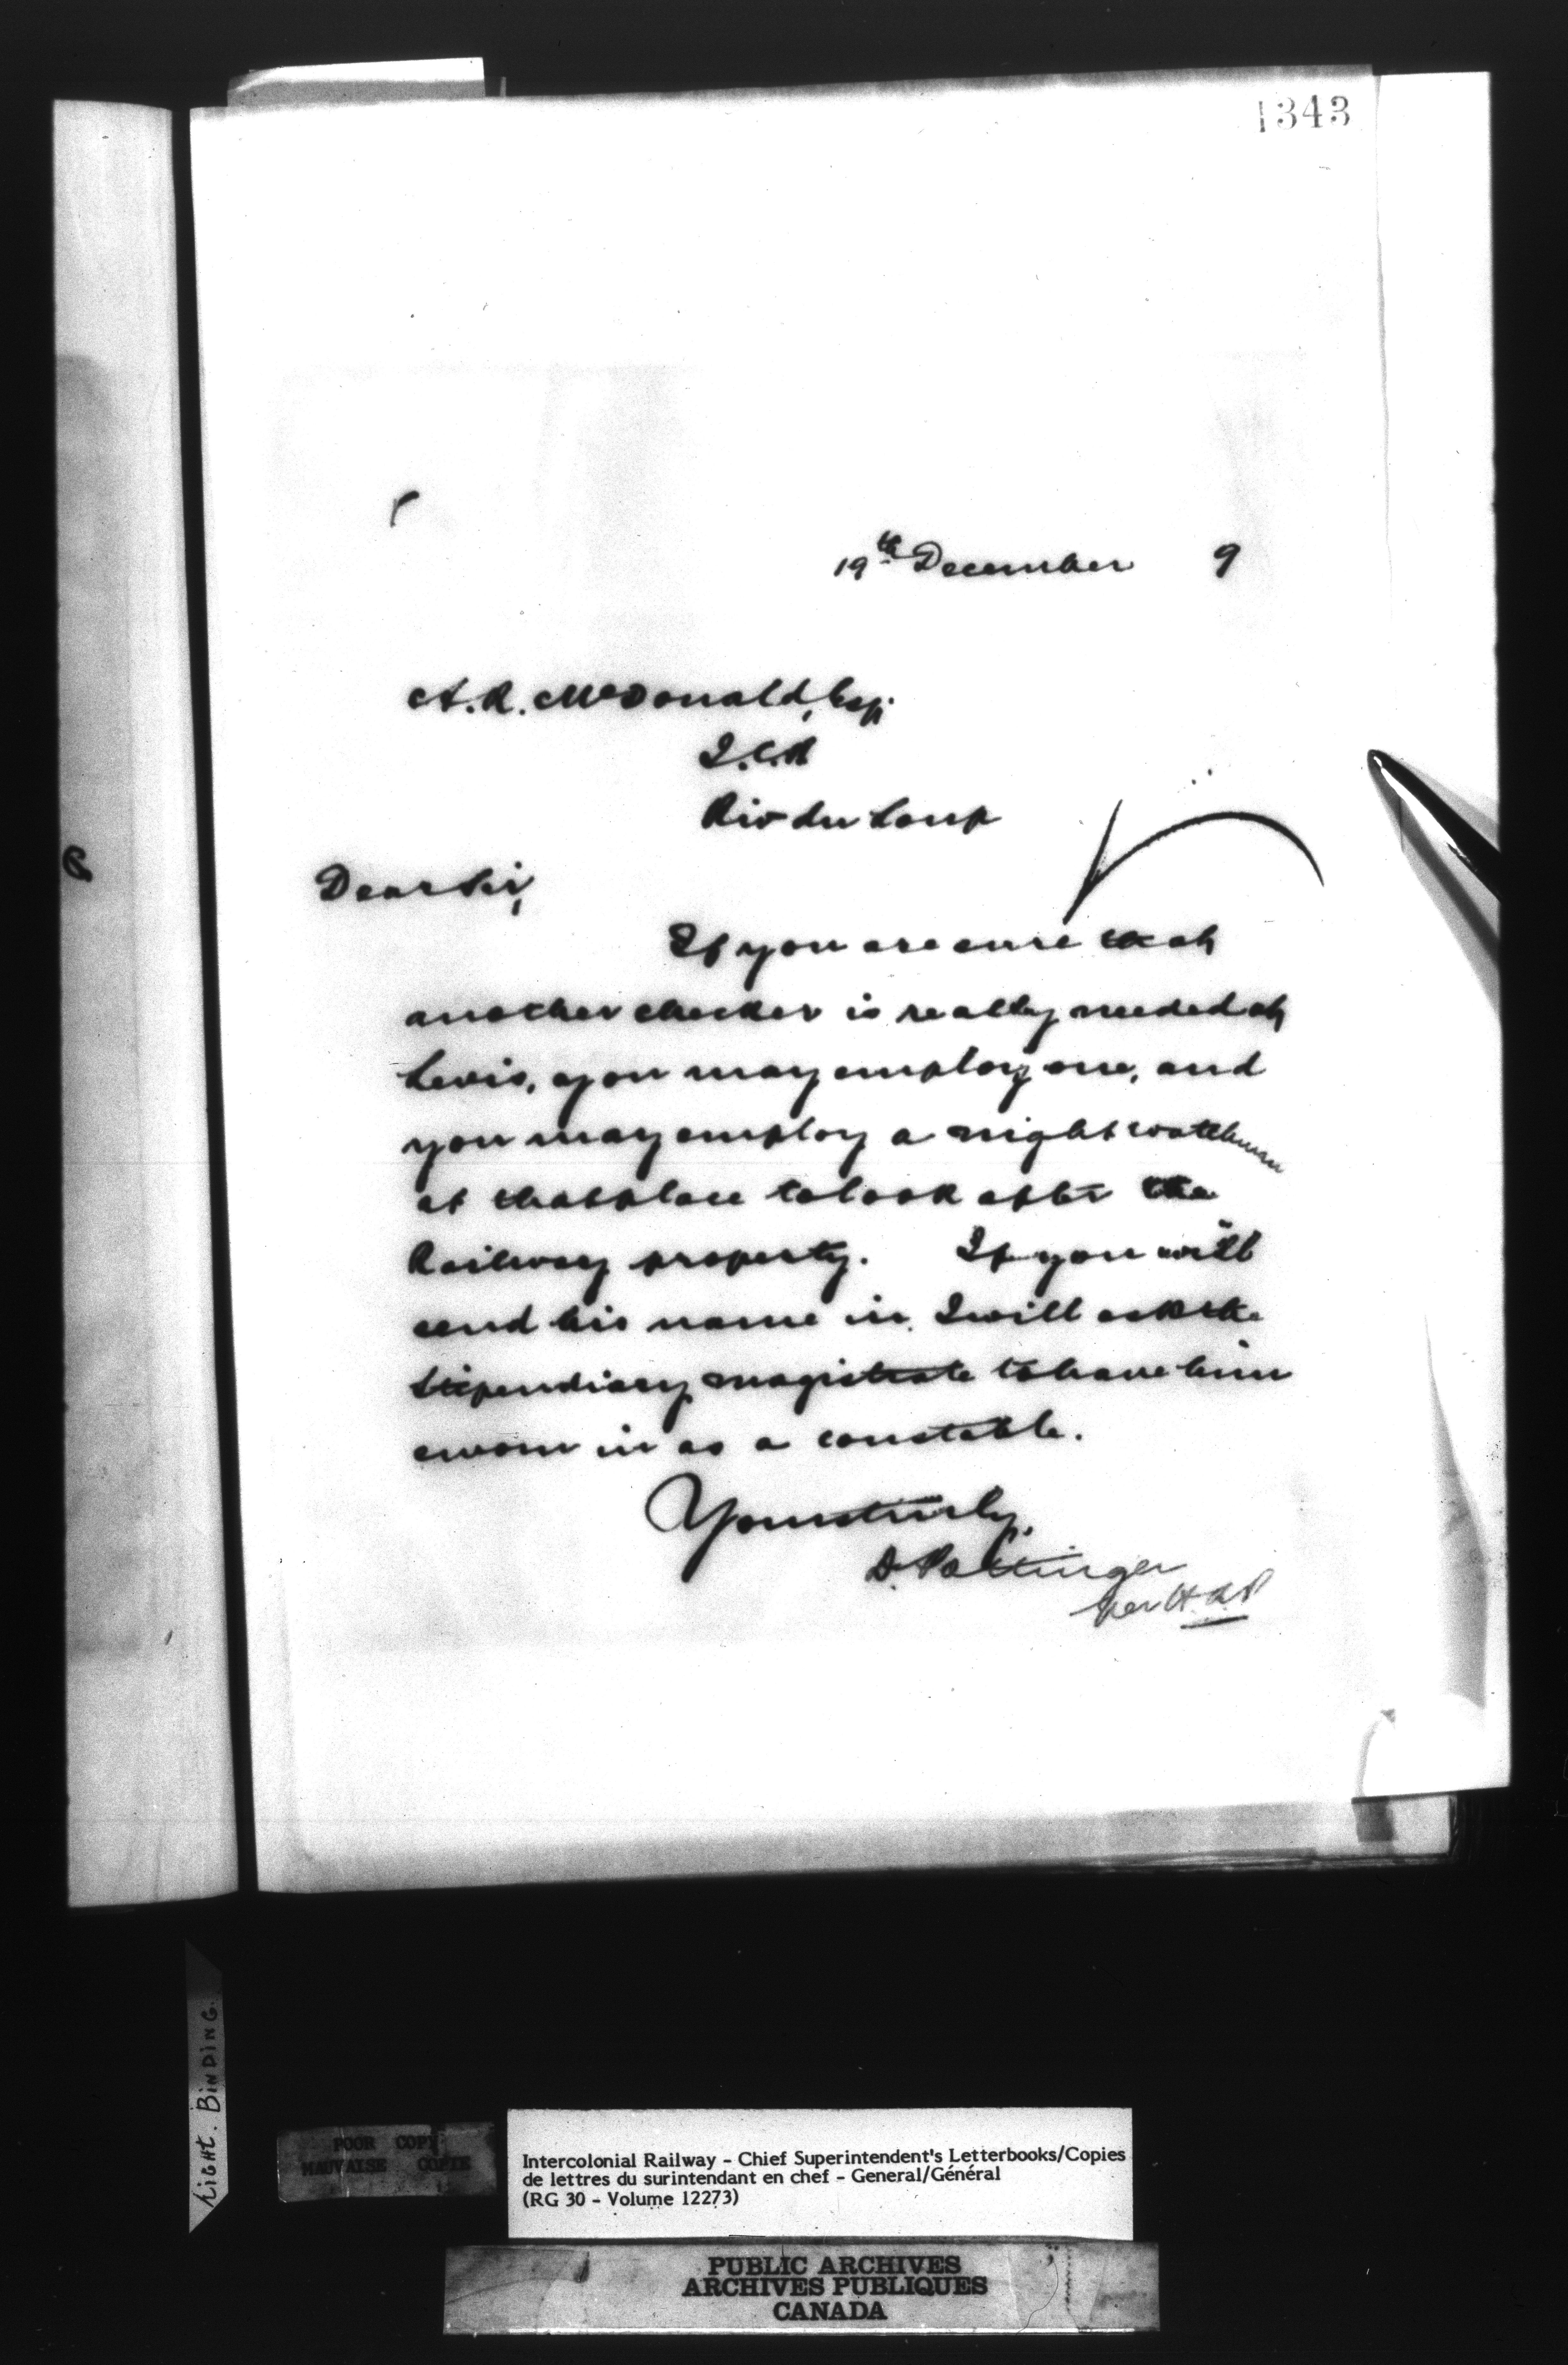 1343
19th December 9
A. R. McDonald, Esq.
I.C.R
Riv du Loup
Dear Sir,
If you are sure that
another checker is really needed at
Levis, you may employ one, and
you may employ a night watchman
at that place to look after the
Railway property. If you will
send his name in, I will ask the
Stipendiary magistrate to have him
sworn in as a constable.
Yours truly,
D. Pottinger
per H.A.P
LIGHT. BINDING.
POOR COPY
MAUVAISE COPIE
Intercolonial Railway - Chief Superintendent's Letterbooks/Copies
de lettres du surintendant en chef - General/Général
(RG 30 - Volume 12273)
PUBLIC ARCHIVES
ARCHIVES PUBLIQUES
CANADA